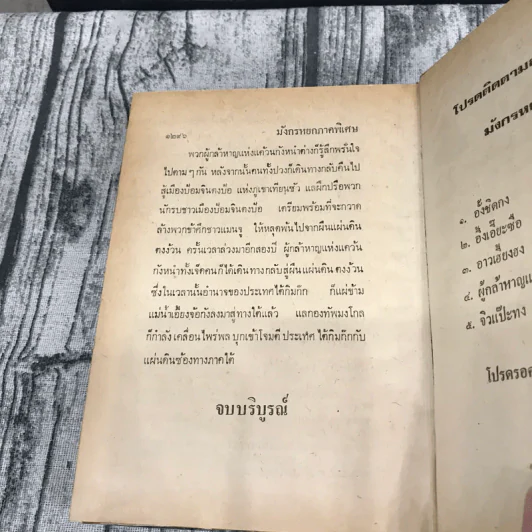 ๑๒๙๖
มังกรหยกภาคพิเศษ
พวกผู้กล้าหาญแห่งแคว้นกังหน่ำต่างก็รู้สึกพรั่นใจ
ไปตามๆ กัน หลังจากนั้นคนทั้งปวงก็เดินทางกลับคืนไป
สู่เมืองบ้อมจินคงป้อ แห่งภูเขาเทียนซัว แลฝึกปรือพวก
นักรบชาวเมืองบ้อมจินคงป้อ เตรียมพร้อมที่จะกวาด
ล้างพวกข้าศึกชาวแมนจู ให้หลุดพ้นไปจากผืนแผ่นดิน
ตงง้วน ครั้นเวลาล่วงมาอีกสองปี ผู้กล้าหาญแห่งแคว้น
กังหน่ำทั้งเจ็ดคนก็ได้เดินทางกลับสู่ผืนแผ่นดินตงง้วน
ซึ่งในเวลานั้นอำนาจของประเทศไต้กิมก๊ก ก็แผ่ข้าม
แม่น้ำเอี้ยงจือกังลงมาสู่ทางใต้แล้ว แลกองทัพมงโกล
ก็กำลังเคลื่อนไพร่พล บุกเข้าโจมตีประเทศไต้กิมก๊กกับ
แผ่นดินซ้องทางภาคใต้
จบบริบูรณ์
โปรดติดตาม
มังกรหย
๑. อั้งชิดกง
๒. อึ้งเอี๊ยะซือ
๓. อาวเฮี้ยงฮง
๔. ผู้กล้าหาญแ
๕. จิวแป๊ะทง
โปรดรอ